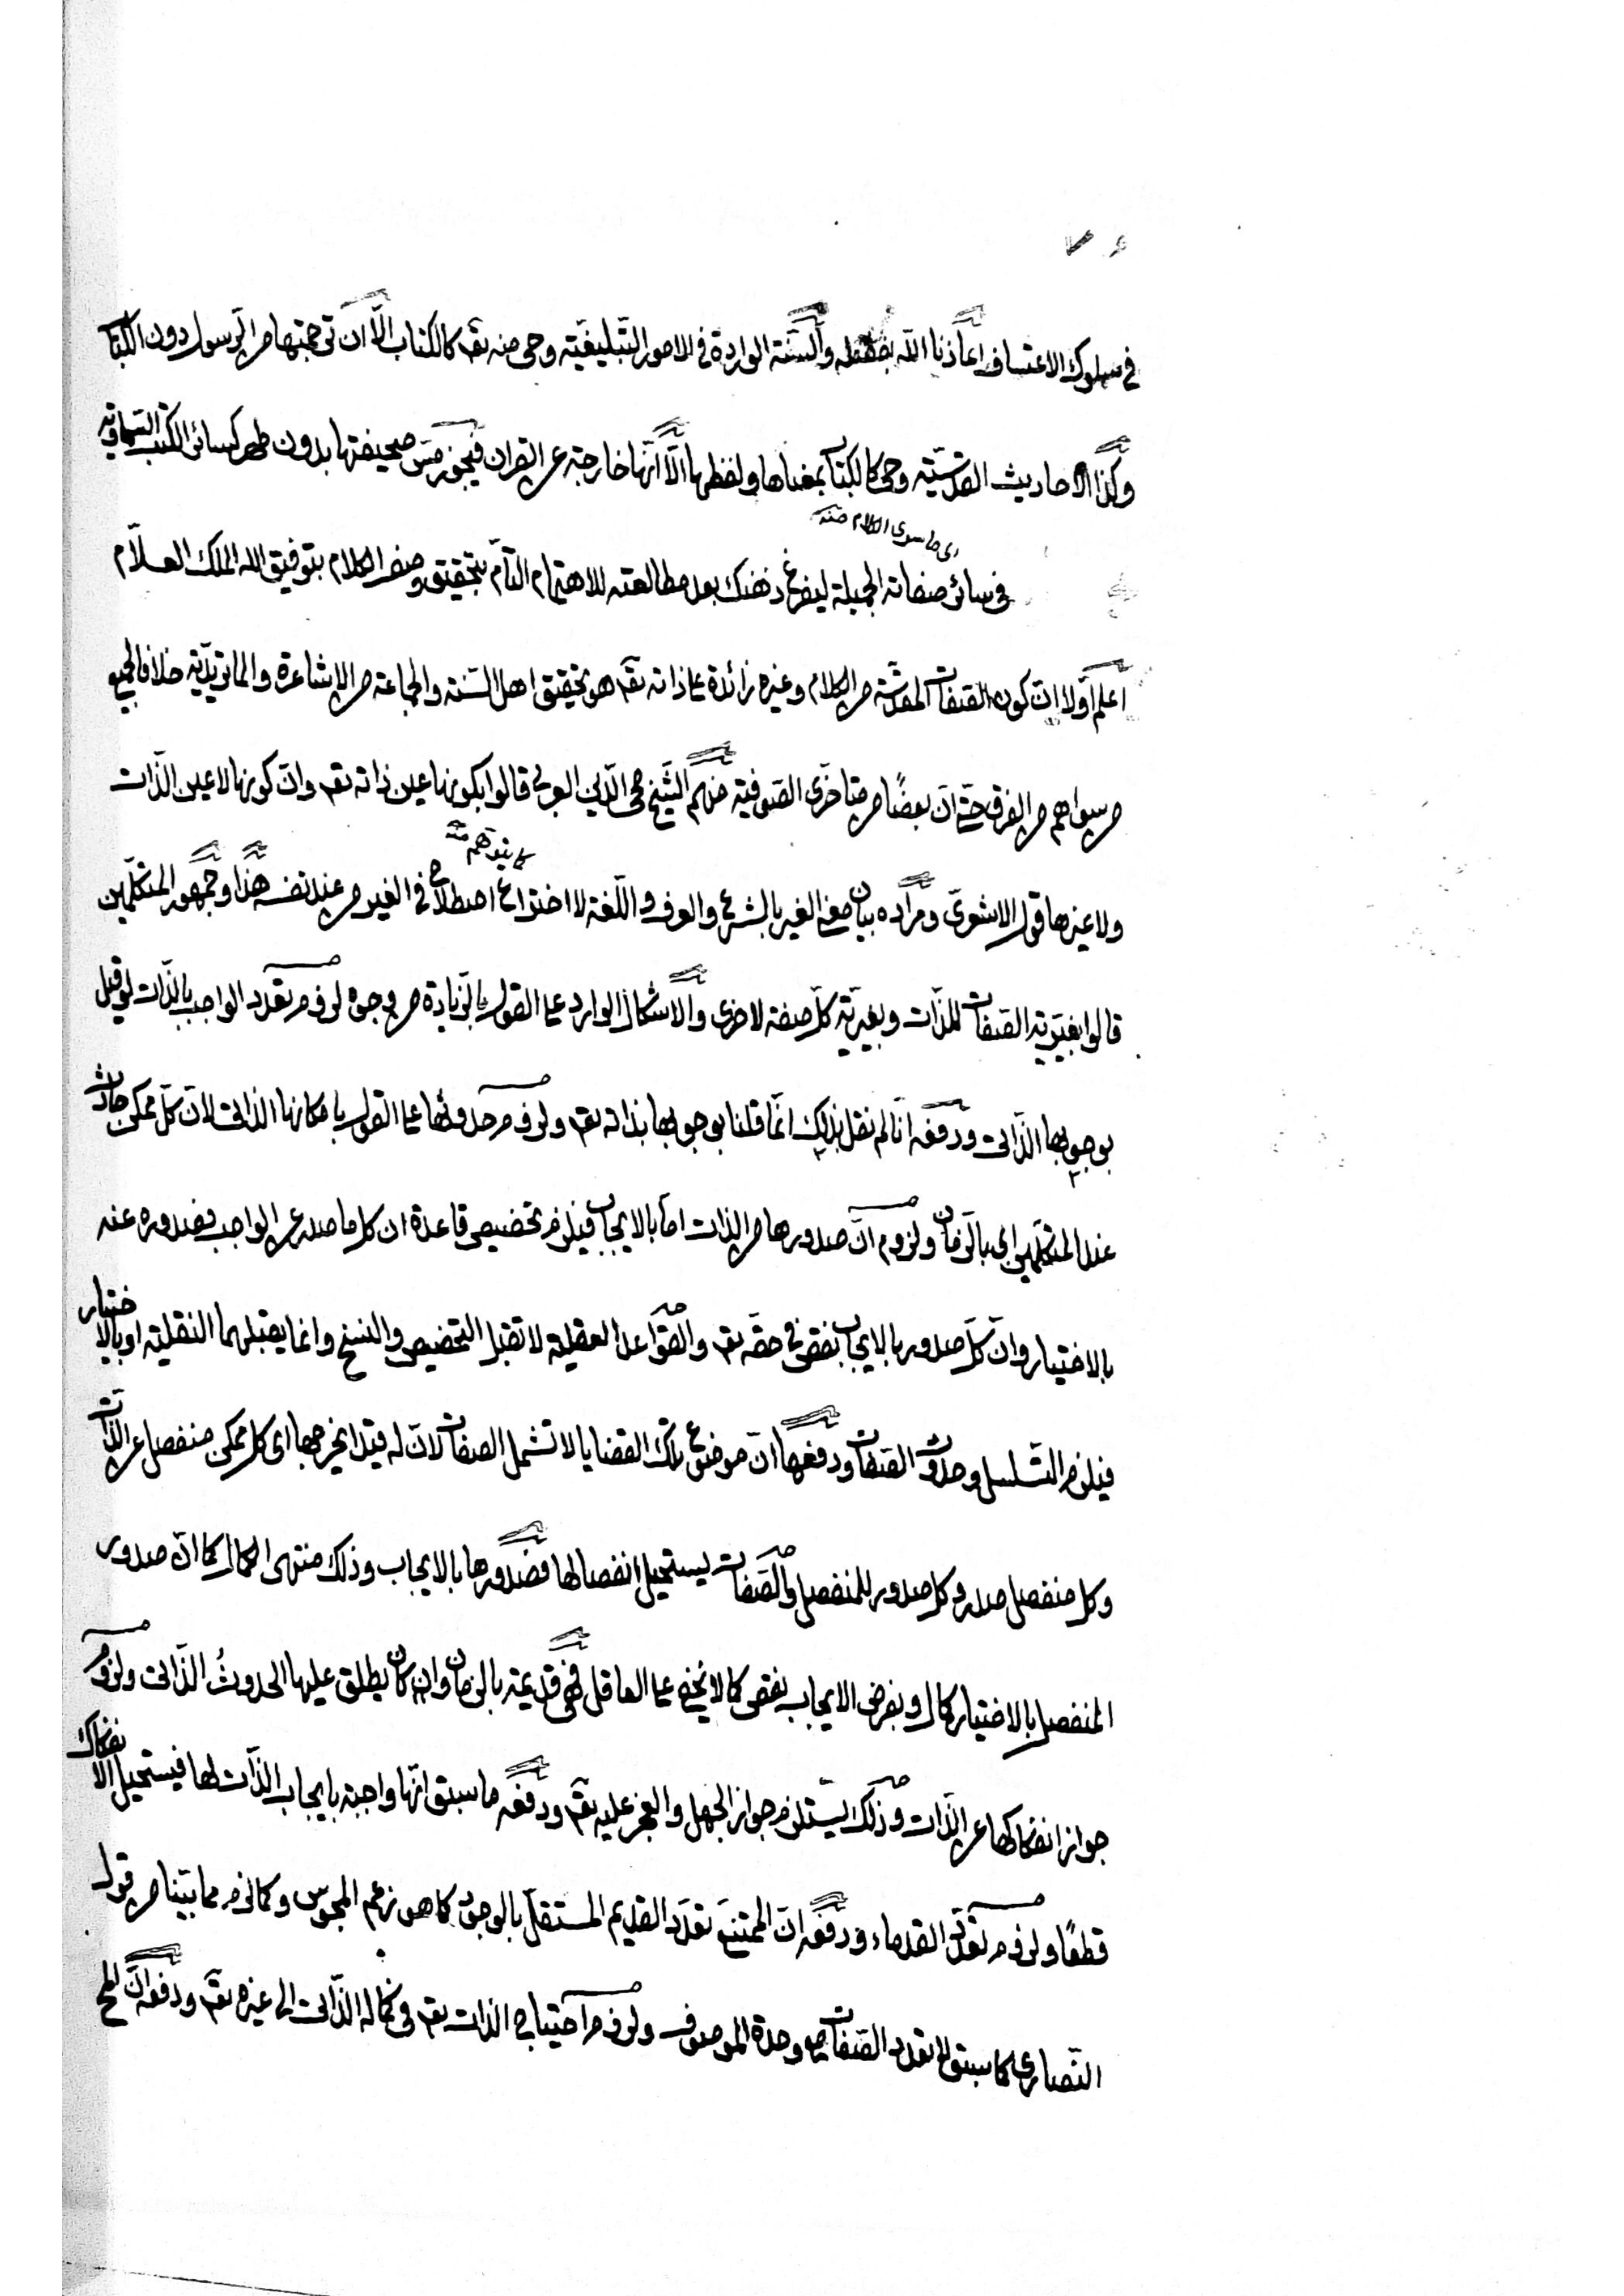 في سلوك الاعتساف اعاذنا الله بحفظه والسنة الواردة في الامور التبليغية وحي منه تع كالكتاب الا ان ترجمتها من الرسول دون الكتاب
وكذا الاحاديث القدسية وحي كالكتاب بمعناها ولفظها الا انها خارجة عن القران فيجوز مس صحيفتها بدون طهر كسائر الكتب السماوية
اى ما سوى الكلام منه
في سائر صفاته الجميلة ليفرغ ذهنك بعد مطالعته للاهتمام التام بتحقيق وصف الكلام بتوفيق الله الملك العلام
اعلم اولا ان كون الصفات المقدسة من الكلام وغيره زائدة على ذاته تع هو تحقيق اهل السنة والجماعة من الاشاعرة والماتريدية خلافا لجميع
من سواهم من الفرق حتى ان بعضا من متاخرى الصوفية منهم الشيخ محى الدين العربى قالوا بكونها عين ذاته تع وان كونها لا عين الذات
ولا غيرها قول الاشعرى ومراده بيان معنى الغير بالشرع والعرف واللغة لا اختراع اصطلاح في الغير من عند نفسه هذا وجمهور المتكلمين
كما يتوهم منه
قالوا بغيرية الصفات للذات وبغيرية كل صفة لاخرى والاشكال الوارد على القول بالزيادة من وجوه لزوم تعدد الواجب بالذات لو قيل
بوجوبها الذاتى ودفعه انا لم نقل بذلك انما قلنا بوجوبها بذاته تع ولزوم حدوثها على القول بامكانها الذاتى لان كل ممكن حادث
عند المتكلمين اى بالزمان ولزوم ان صدورها من الذات اما بالايجاب فيلزم تخصيص قاعدة ان كل ما صدر عن الواجب فصدوره عنه
بالاختيار وان كل صدور بالايجاب نقص في حقه تع والقواعد العقلية لا تقبل التخصيص والنسخ وانما يقبلهما النقلية او بالاختيار
فيلزم التسلسل وحدوث الصفات ودفعها ان موضوع تلك القضايا لا تشمل الصفات لان له قيدا يخرجها اى كل ممكن منفصل عن الذات
وكل منفصل صدر وكل صدور للمنفصل والصفات يستحيل انفصالها فصدورها بالايجاب وذلك منتهى الكمال كما ان صدور
المنفصل بالاختيار كمال وبفرض الايجاب نقص كما لا يخفى على العاقل فهى قديمة بالزمان وان كان يطلق عليها الحدوث الذاتى ولزوم
جواز انفكاكها عن الذات وذلك يستلزم جواز الجهل والعجز عليه تع ودفعه ما سبق انها واجبة بايجاب الذات لها فيستحيل الانفكاك
قطعا ولزوم تعدد القدماء ودفعه ان الممتنع تعدد القديم المستقل بالوجود كما هو زعم المجوس وكما لزم مما بينا من قول
النصارى كما سبق لا تعدد الصفات مع وحدة الموصوف ولزوم احتياج الذات تع في كماله الذاتى الى غيره تع ودفعه ان المح